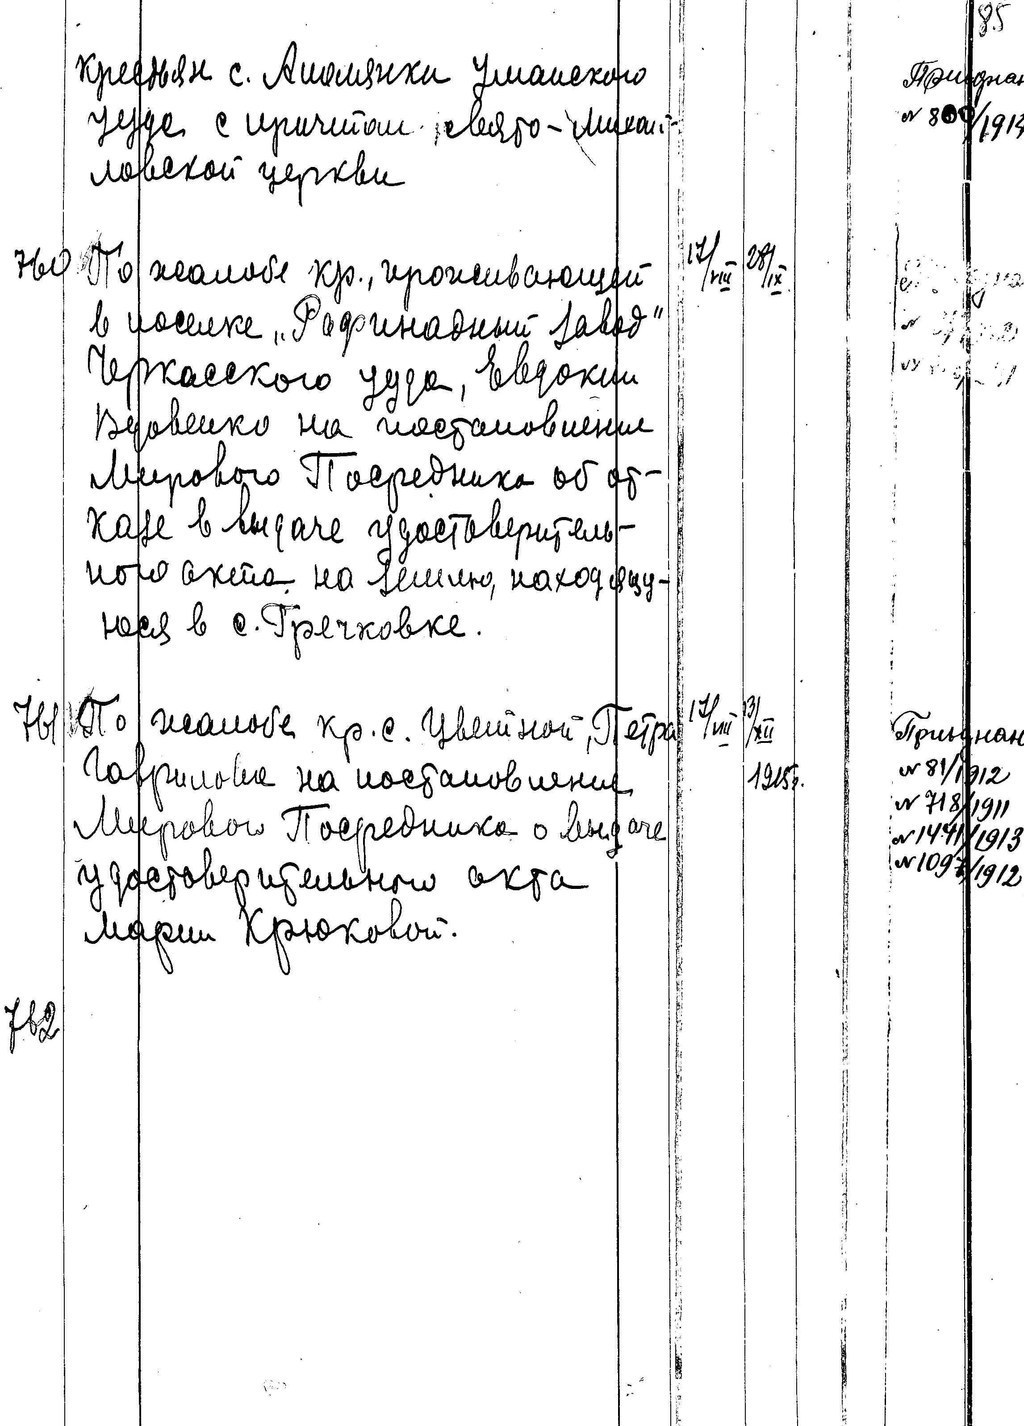 85
крестьян с. Аполянки Уманского
уезда с причтом свято-Михай-
ловской церкви
№ 8 /1914
760 По жалобе кр., проживающей 17/VIII 28/IX
в поселке „Рафинадный завод"
Черкасского уезда, Евдокии
Вдовенко на постановление
Мирового Посредника об от-
казе в выдаче удостоверитель-
ного акта на землю, находящу-
юся в с. Гречковке.
761 По жалобе кр. с. Цветной, Петра 17/VIII 3/XII 1915г.
Гаврилова на постановление
Мирового Посредника о выдаче
удостоверительного акта
Марии Крюковой.
№ 81/1912
№ 718/1911
№ 1441/1913
№ 1097/1912
762